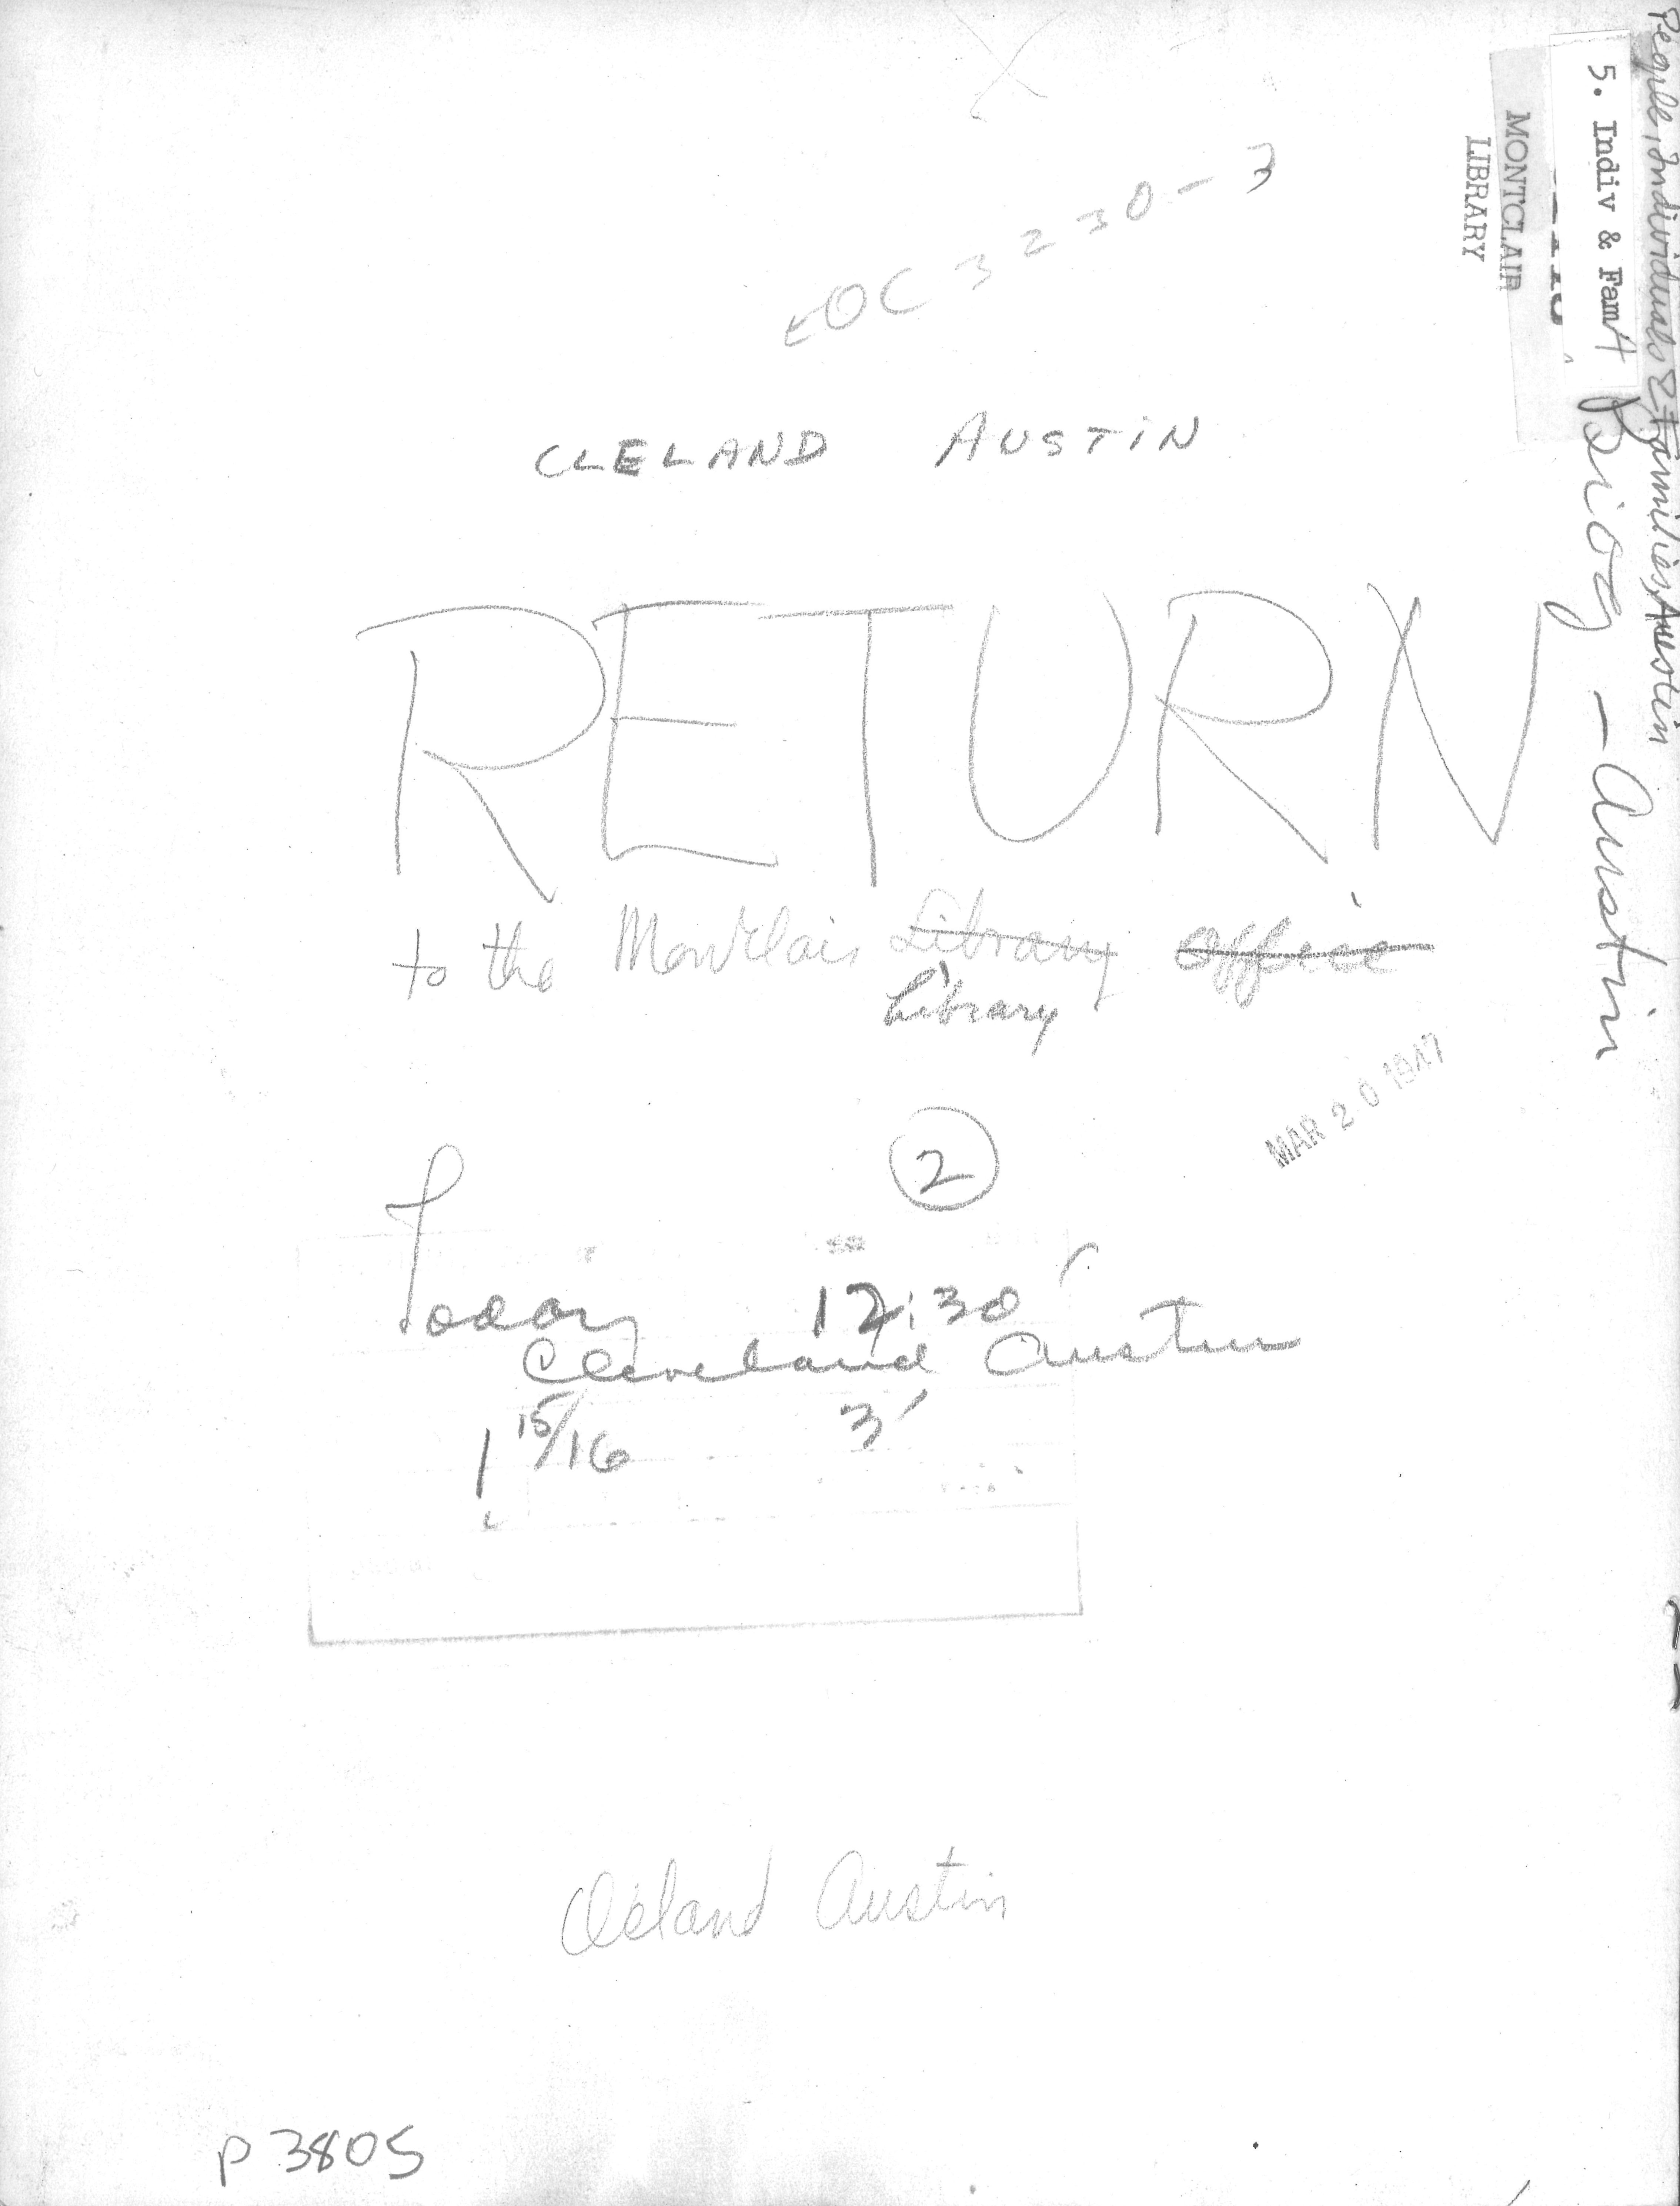 LOC 3230-3
CLELAND AUSTIN
RETURN
to the Montclair Library Office
Library
MAR 20 1947
2
Today 12:30
Cleveland Austin
1 15/16 3'
Cleland Austin
P 3805
People, Individuals & Families, Austin
5. Indiv & Fam A
Biog - Austin
MONTCLAIR
LIBRARY